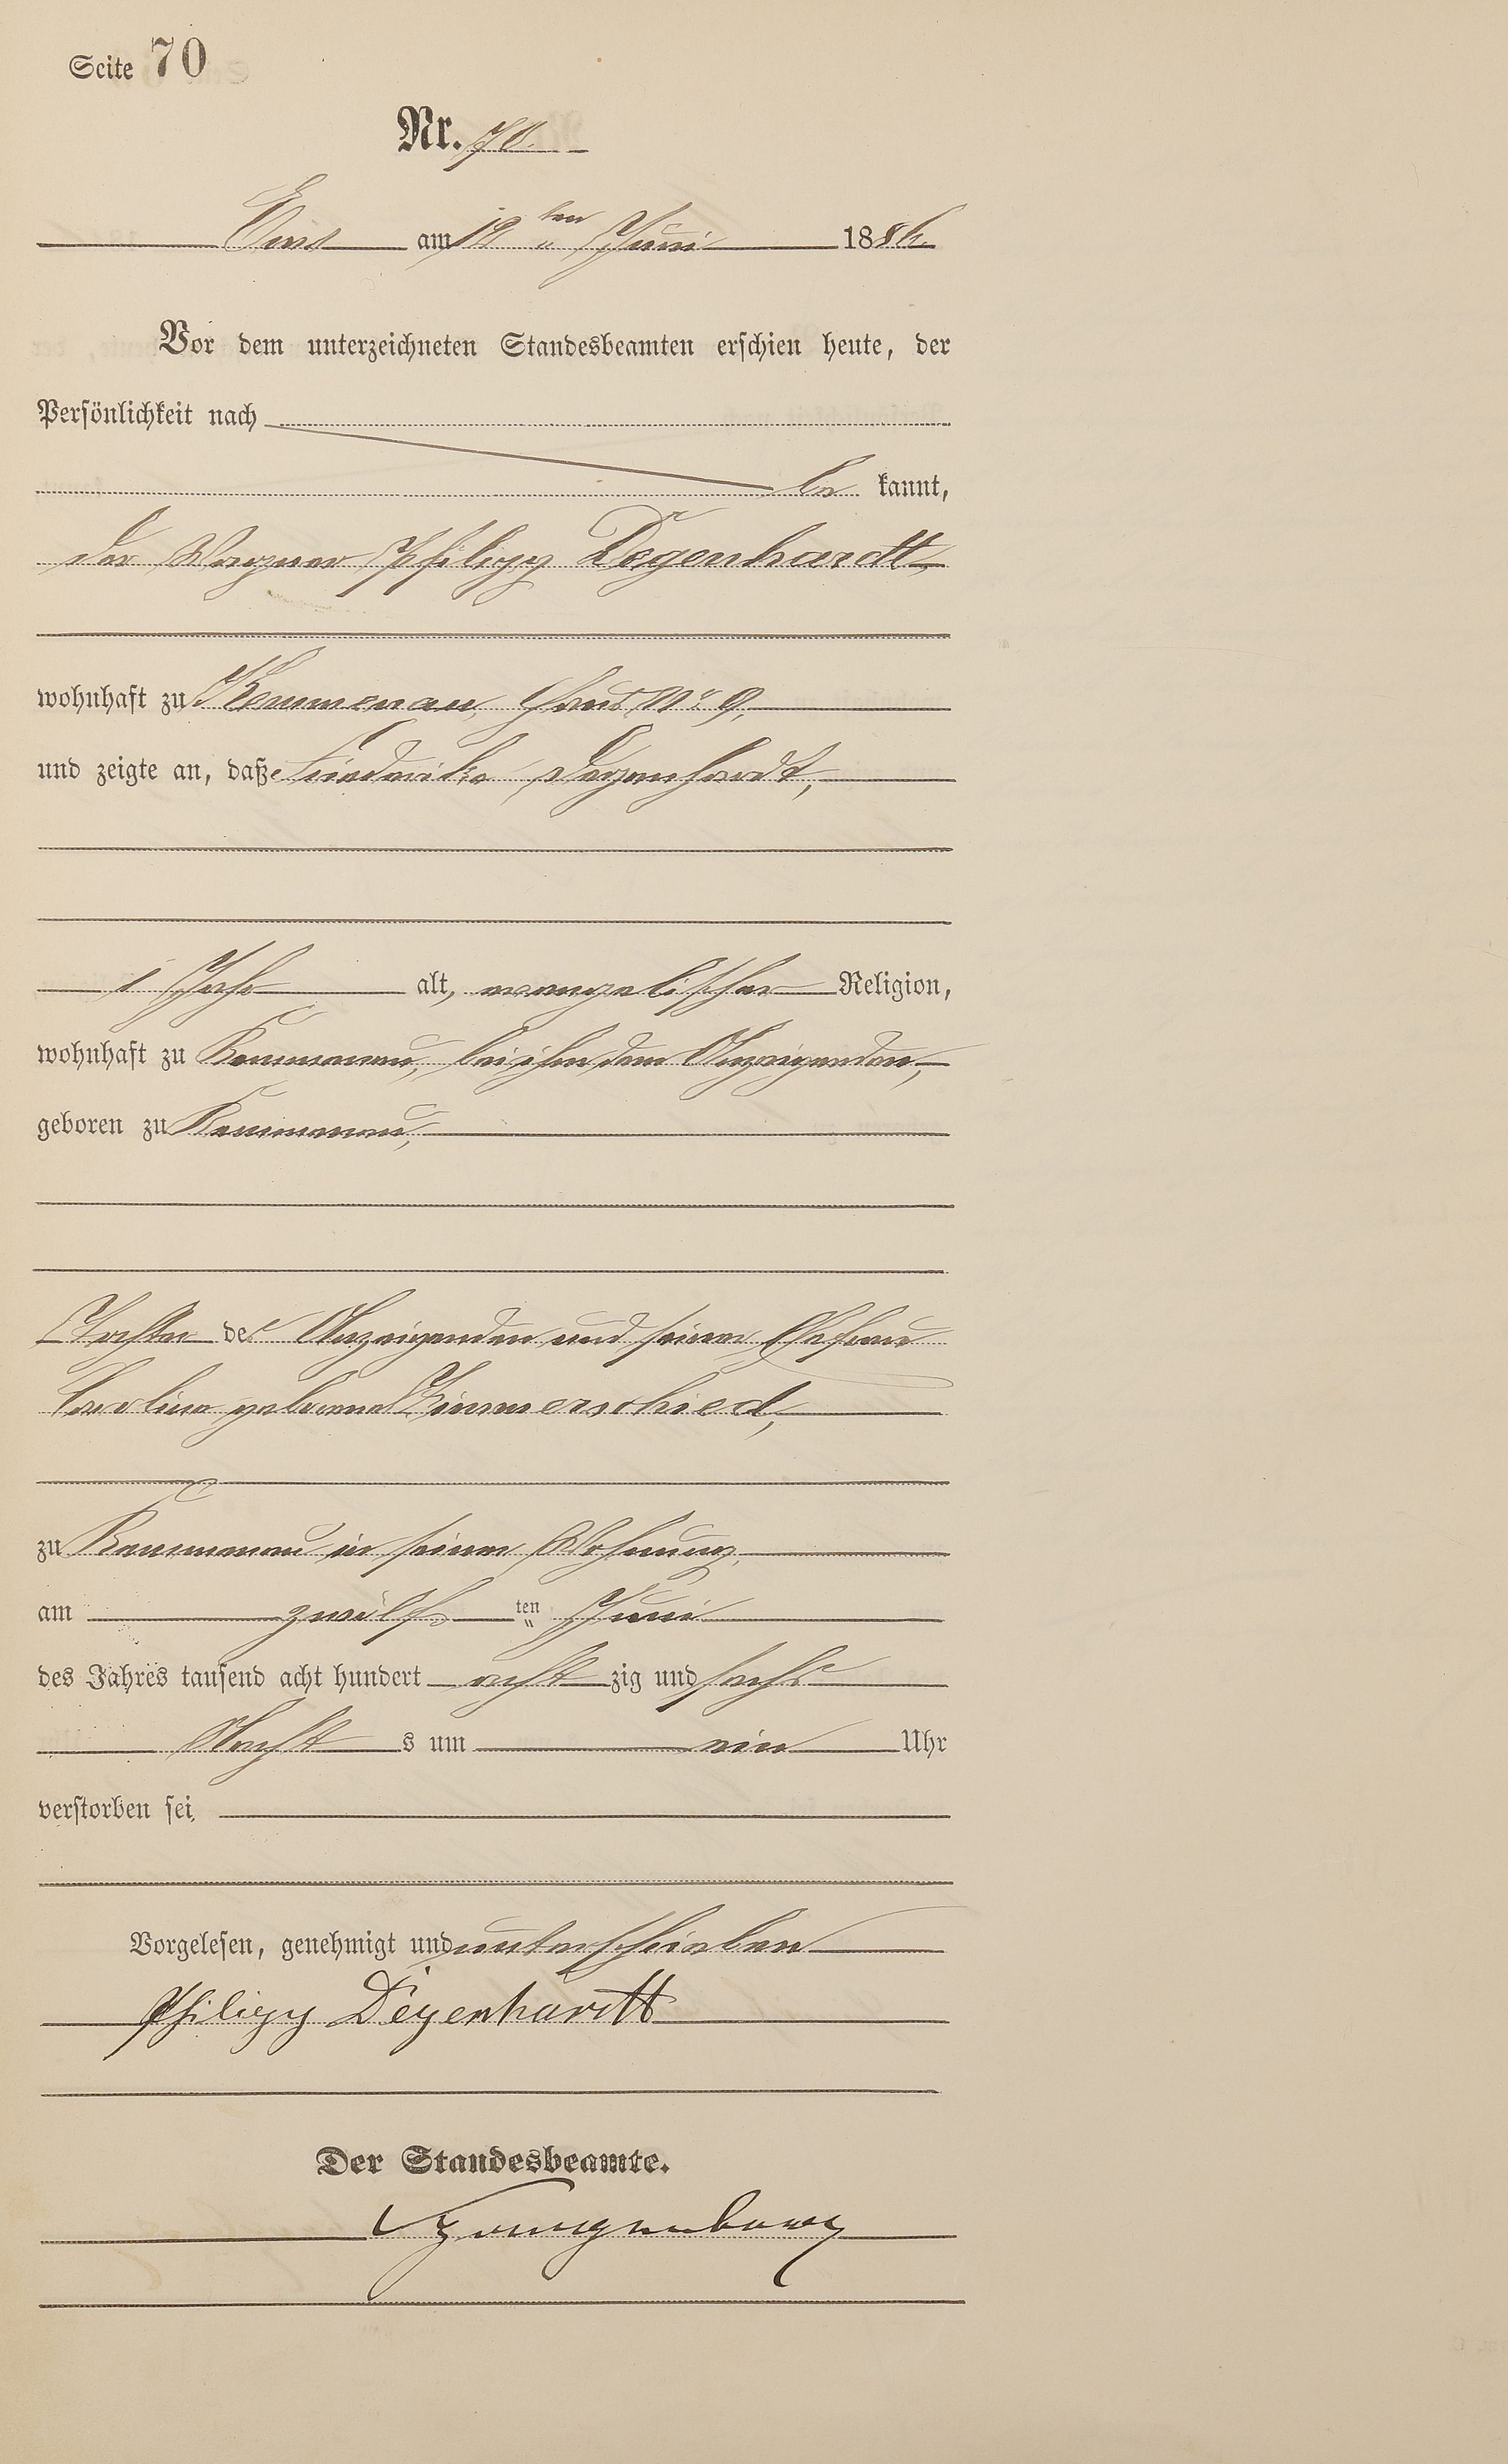 Seite 70
Nr. 70.
Ems am 12ten Juni 1886.
Vor dem unterzeichneten Standesbeamten erschien heute, der
Persönlichkeit nach
be kannt,
der Wagner Philipp Degenhardt,
wohnhaft zu Kemmenau, Haus No 9,
und zeigte an, daß Friederike Degenhardt,
1 Jahr alt, evangelischer Religion,
wohnhaft zu Kemmenau, bei ihm dem Anzeigenden,
geboren zu Kemmenau,
Tochter des Anzeigenden und seiner Ehefrau
Caroline geborene Zimmerschied,
zu Kemmenau in seiner Wohnung,
am zwölf ten Juni
des Jahres tausend acht hundert acht zig und sechs
Nacht s um ein Uhr
verstorben sei
Vorgelesen, genehmigt und unterschrieben
Philipp Degenhardt
Der Standesbeamte.